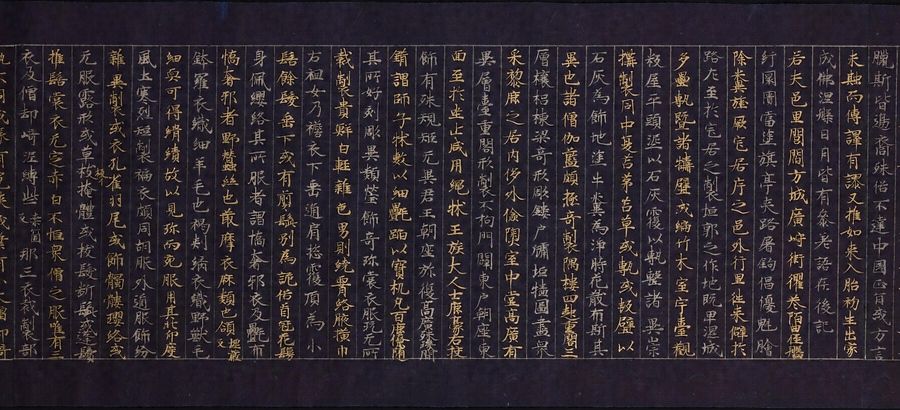 臘斯皆邊裔殊俗不達中國正音或方言
未融而傳譯有謬又推如來入胎初生出家
成佛涅槃日月皆有參差語在後記
若夫邑里閭閻方城廣峙街衢巷陌曲徑盤
紆闤闠當塗旗亭夾路屠鉤倡優魁膾
除糞旌厥宅居斥之邑外行里往來僻於
路左至於宅居之製垣郭之作地既卑濕城
多疊甎暨諸牆壁或編竹木室宇臺觀
板屋平頭泥以石灰覆以甎墼諸異崇
構製同中夏苫茅苫草或甎或板壁以
石灰為飾地塗牛糞為淨時花散布斯其
異也諸僧伽藍頗極奇製隅樓四起重閣三
層榱梠棟梁奇形彫鏤戶牖垣墻圖畫眾
采黎庶之居內侈外儉隩室中堂高廣有
異層臺重閣形製不拘門闢東戶朝座東
面至於坐止咸用繩牀王族大人士庶豪右莊
飾有殊規矩無異君王朝座弥復高廣珠璣間
錯謂師子牀敷以細㲲蹈以寶机凡百庶僚隨
其所好刻彫異類瑩飾奇弥裳衣服玩無所
裁製貴鮮白輕雜色男則繞署絡腋橫巾
右袒女乃襜衣下垂通肩總覆頂為小
髻餘髮垂下或有剪髭別為詭俗首冠花鬘
身佩纓絡其所服者謂憍奢邪衣及㲲布
憍奢邪者野蠶絲也叢摩衣麻類也頷 又 墟嚴
鉢羅衣織細羊毛也褐剌縭衣織野獸毛
細耎可得緝績故以見珎而充服用其北印度
風土寒烈短製褊衣頗同胡服外道服飾紛
雜異製或衣孔雀羽尾或飾髑髏瓔絡或
无服露形或草板掩體或拔髮斷髭或蓬鬢
推髻裳衣无定赤白不恒眾僧之服唯有三
衣及僧却崎涅縛些 又 那三衣裁製部